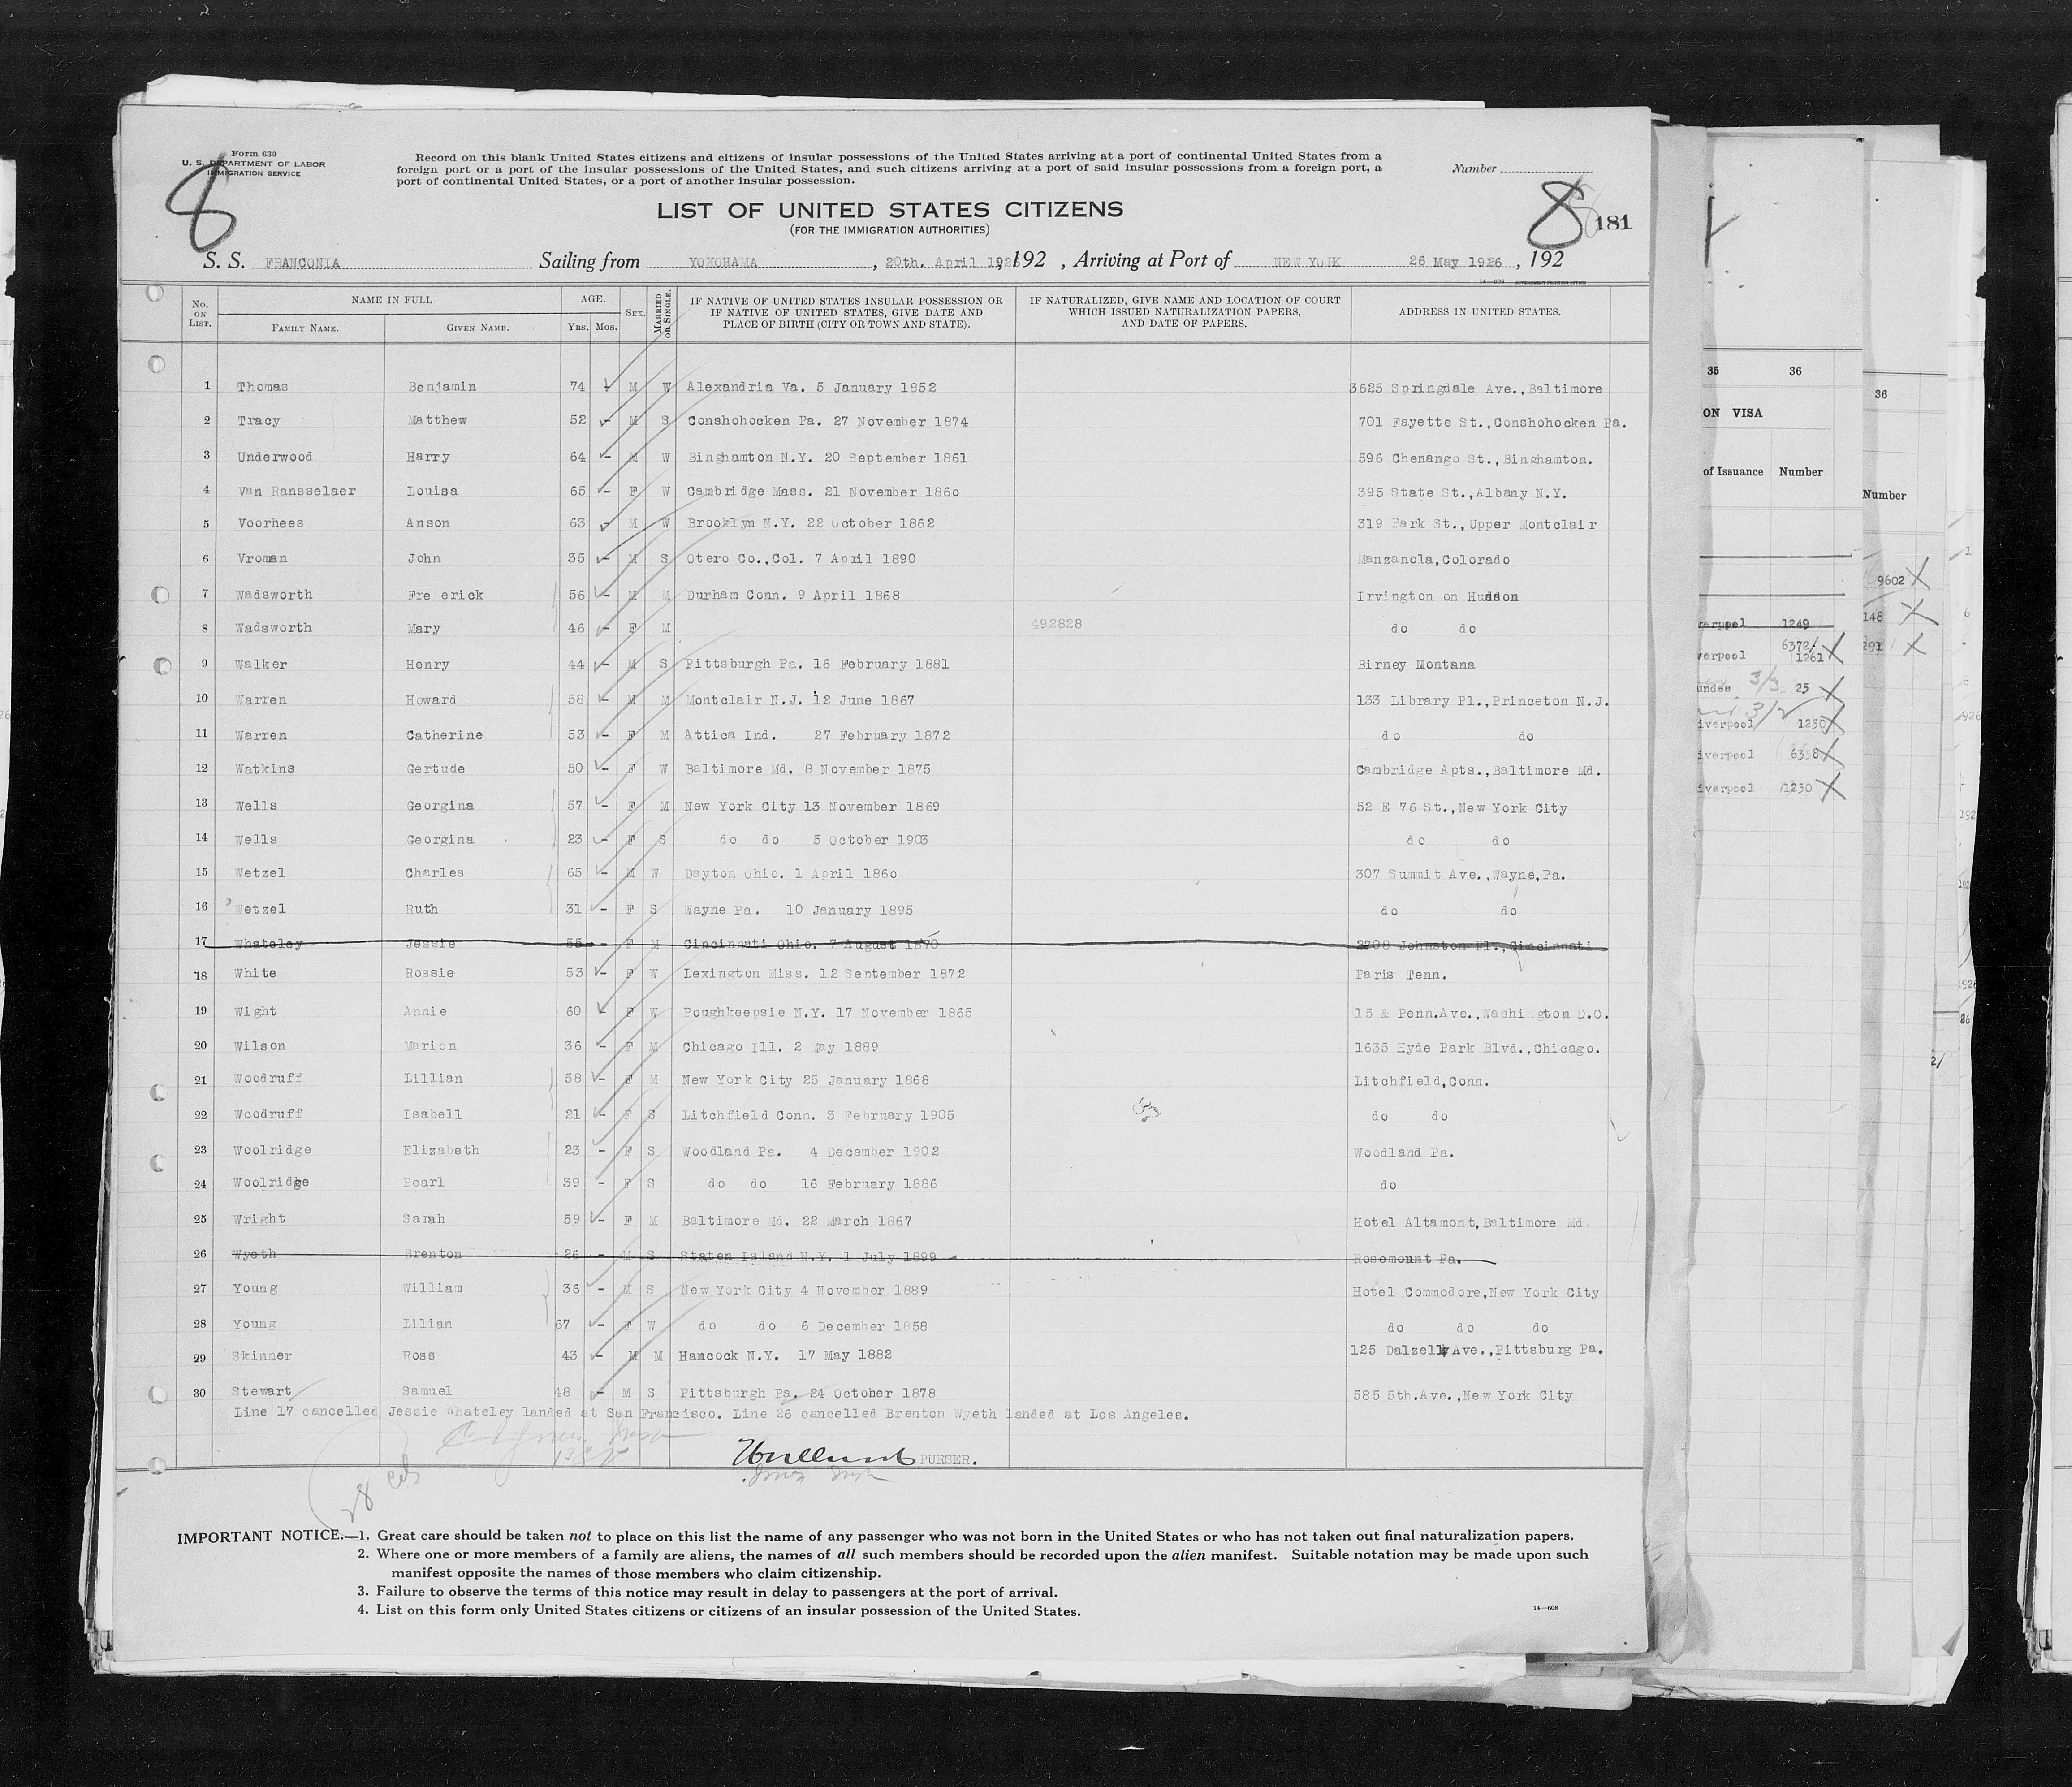 Form 630
U. S. DEPARTMENT OF LABOR
IMMIGRATION SERVICE
8
Record on this blank United States citizens and citizens of insular possessions of the United States arriving at a port of continental United States from a
foreign port or a port of the insular possessions of the United States, and such citizens arriving at a port of said insular possessions from a foreign port, a
port of continental United States, or a port of another insular possession.
Number
8 181
LIST OF UNITED STATES CITIZENS
(FOR THE IMMIGRATION AUTHORITIES)
S. S. FRANCONIA Sailing from YOKOHAMA, 20th. April 1926, 192 , Arriving at Port of NEW YORK 26 May 1926, 192
14—608 GOVERNMENT PRINTING OFFICE
No. ON LIST. NAME IN FULL FAMILY NAME. GIVEN NAME. AGE. Yrs. Mos. SEX. MARRIED OR SINGLE. IF NATIVE OF UNITED STATES INSULAR POSSESSION OR IF NATIVE OF UNITED STATES, GIVE DATE AND PLACE OF BIRTH (CITY OR TOWN AND STATE). IF NATURALIZED, GIVE NAME AND LOCATION OF COURT WHICH ISSUED NATURALIZATION PAPERS, AND DATE OF PAPERS. ADDRESS IN UNITED STATES.
1 Thomas Benjamin 74 - M W Alexandria Va. 5 January 1852 3625 Springdale Ave.,Baltimore
2 Tracy Matthew 52 - M S Conshohocken Pa. 27 November 1874 701 Fayette St.,Conshohocken Pa.
3 Underwood Harry 64 - M W Binghamton N.Y. 20 September 1861 596 Chenango St.,Binghamton.
4 Van Ransselaer Louisa 65 - F W Cambridge Mass. 21 November 1860 395 State St.,Albany N.Y.
5 Voorhees Anson 63 - M W Brooklyn N.Y. 22 October 1862 319 Park St.,Upper Montclair
6 Vroman John 35 - M S Otero Co.,Col. 7 April 1890 Manzanola,Colorado
7 Wadsworth Fre erick 56 - M M Durham Conn. 9 April 1868 Irvington on Hudson
8 Wadsworth Mary 46 - F M 492828 do do
9 Walker Henry 44 - M S Pittsburgh Pa. 16 February 1881 Birney Montana
10 Warren Howard 58 - M M Montclair N.J. 12 June 1867 133 Library Pl.,Princeton N.J.
11 Warren Catherine 53 - F M Attica Ind. 27 February 1872 do do
12 Watkins Gertude 50 - F W Baltimore Md. 8 November 1875 Cambridge Apts.,Baltimore Md.
13 Wells Georgina 57 - F M New York City 13 November 1869 52 E 76 St.,New York City
14 Wells Georgina 23 - F S do do 5 October 1903 do do
15 Wetzel Charles 65 - M W Dayton Ohio. 1 April 1860 307 Summit Ave.,Wayne,Pa.
16 Wetzel Ruth 31 - F S Wayne Pa. 10 January 1895 do do
17 Whateley Jessie 55 - F M Cincinnati Ohio. 7 August 1870 2708 Johnston Pl.,Cincinnati
18 White Rossie 53 - F W Lexington Miss. 12 September 1872 Paris Tenn.
19 Wight Annie 60 - F W Poughkeepsie N.Y. 17 November 1865 15 & Penn.Ave.,Washington D.C.
20 Wilson Marion 36 - F M Chicago Ill. 2 May 1889 1635 Hyde Park Blvd.,Chicago.
21 Woodruff Lillian 58 - F M New York City 25 January 1868 Litchfield,Conn.
22 Woodruff Isabell 21 - F S Litchfield Conn. 3 February 1905 do do
23 Woolridge Elizabeth 23 - F S Woodland Pa. 4 December 1902 Woodland Pa.
24 Woolridge Pearl 39 - F S do do 16 February 1886 do
25 Wright Sarah 59 - F M Baltimore Md. 22 March 1867 Hotel Altamont,Baltimore Md.
26 Wyeth Brenton 26 - M S Staten Island N.Y. 1 July 1899 Rosemount Pa.
27 Young William 36 - M S New York City 4 November 1889 Hotel Commodore,New York City
28 Young Lilian 67 - F W do do 6 December 1858 do do do
29 Skinner Ross 43 - M M Hancock N.Y. 17 May 1882 125 Dalzell Ave.,Pittsburg Pa.
30 Stewart Samuel 48 - M S Pittsburgh Pa. 24 October 1878 585 5th.Ave.,New York City
Line 17 cancelled Jessie Whateley landed at San Francisco. Line 26 cancelled Brenton Wyeth landed at Los Angeles.
PURSER.
28
IMPORTANT NOTICE.—1. Great care should be taken not to place on this list the name of any passenger who was not born in the United States or who has not taken out final naturalization papers.
2. Where one or more members of a family are aliens, the names of all such members should be recorded upon the alien manifest. Suitable notation may be made upon such
manifest opposite the names of those members who claim citizenship.
3. Failure to observe the terms of this notice may result in delay to passengers at the port of arrival.
4. List on this form only United States citizens or citizens of an insular possession of the United States.
14—608
35 36
ON VISA
of Issuance Number
1249
6372
verpool 1261
undee 3/3 25
iverpool 1250
iverpool 6358
iverpool 1230
36
Number
9602
148
291